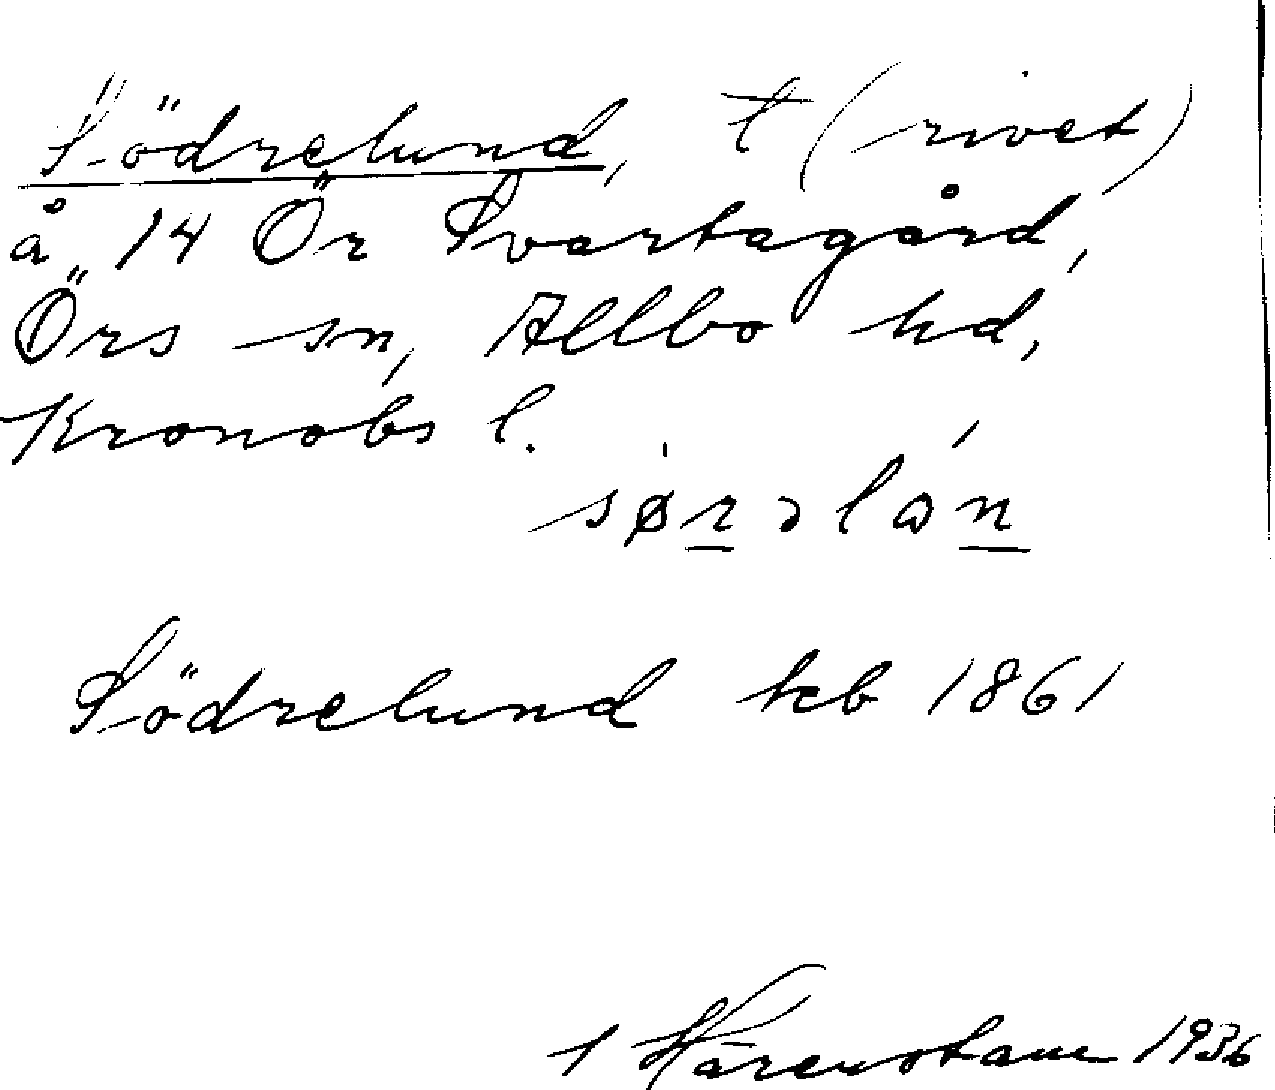 Södrelund, t (rivet)
å 14 Ör Svartagård,
Örs sn, Allbo hd,
Kronobs l.
sørəløn
Södrelund kb 1861
Härenstam 1936